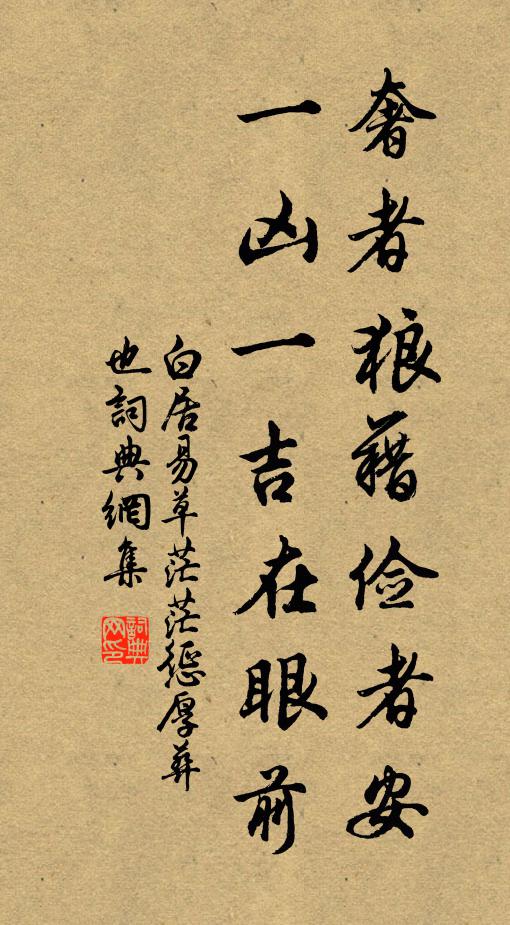 奢者狼藉俭者安
一凶一吉在眼前
白居易草茫茫懲厚葬
也詞典網集
詞典网印